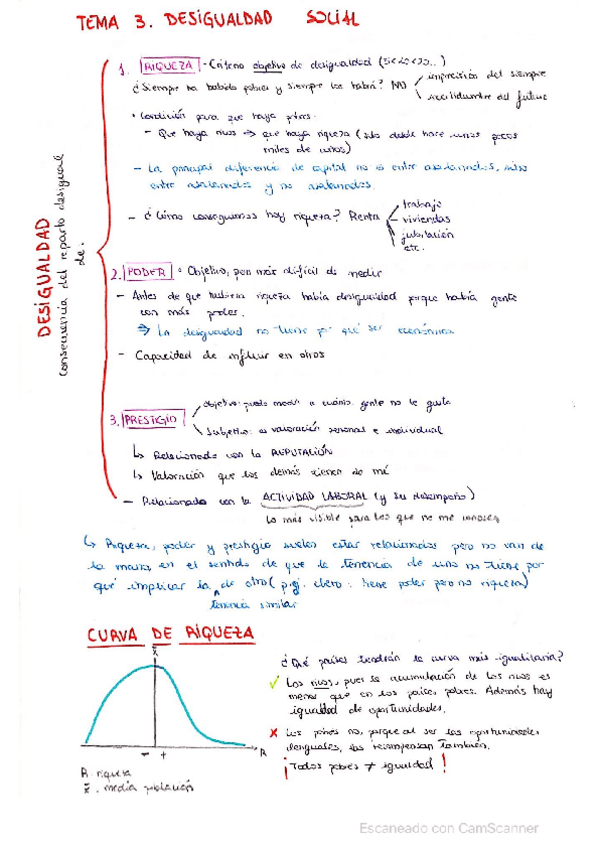 TEMA 3. DESIGUALDAD SOCIAL
DESIGUALDAD
consecuencia del reparto desigual
de:
1. RIQUEZA - Criterio objetivo de desigualdad
¿Siempre ha habido pobres y siempre los habrá? NO
imprecisión del siempre
incertidumbre del futuro
• Condición para que haya pobres:
- Que haya ricos => que haya riqueza (sólo desde hace unos pocos
miles de años)
- La principal diferencia de capital no es entre asalariados, sino
entre asalariados y no asalariados.
- ¿Cómo conseguimos hoy riqueza? Renta
trabajo
viviendas
jubilación
etc.
2. PODER • Objetivo, pero más difícil de medir
- Antes de que hubiera riqueza había desigualdad porque había gente
con más poder.
=> La desigualdad no tiene por qué ser económica
- Capacidad de influir en otros
3. PRESTIGIO
Objetivo: puedo medir a cuánta gente no le gusta
Subjetivo: es valoración personal e individual
↳ Relacionado con la REPUTACIÓN
↳ Valoración que los demás tienen de mí
- Relacionado con la ACTIVIDAD LABORAL (y su desempeño)
Lo más visible para los que no me conocen
↳ Riqueza, poder y prestigio suelen estar relacionados pero no van de
la mano, en el sentido de que la tenencia de uno no tiene por
qué implicar la de otro (p.ej. clero: tiene poder pero no riqueza)
tenencia similar
CURVA DE RIQUEZA
x̄
- +
R
R: riqueza
x̄: media población
¿Qué países tendrán la curva más igualitaria?
✓ Los ricos, pues la acumulación de los ricos es
menor que en los países pobres. Además hay
igualdad de oportunidades.
✗ Los pobres no, porque al ser las oportunidades
desiguales, las recompensas también.
¡Todos pobres ≠ igualdad!
Escaneado con CamScanner